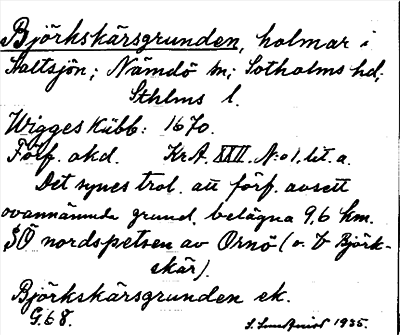 Björkskärsgrunden, holmar i
Saltsjön; Nämdö sn; Sotholms hd;
Sthlms l.
Wigges kübb: 1670.
Förf. okd. KrA. XXII. N:o 1, lit. a.
Det synes trol. att förf. avsett
ovannämnda grund, belägna 9,6 km.
SÖ nordspetsen av Ornö (o. V Björk-
skär).
Björkskärsgrunden ek.
G.68. 1935.